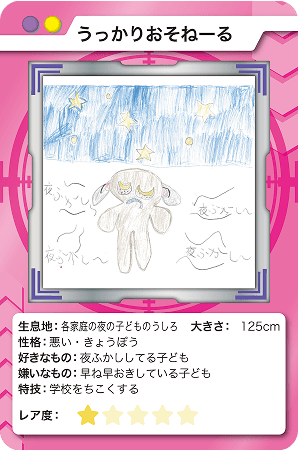 うっかりおそねーる
夜ふかし〜
夜ふかし〜
夜ふかし〜
夜ふかし〜
生息地：各家庭の夜の子どものうしろ　大きさ：　125cm
性格：悪い・きょうぼう
好きなもの：夜ふかししてる子ども
嫌いなもの：早ね早おきしている子ども
特技：学校をちこくする
レア度：